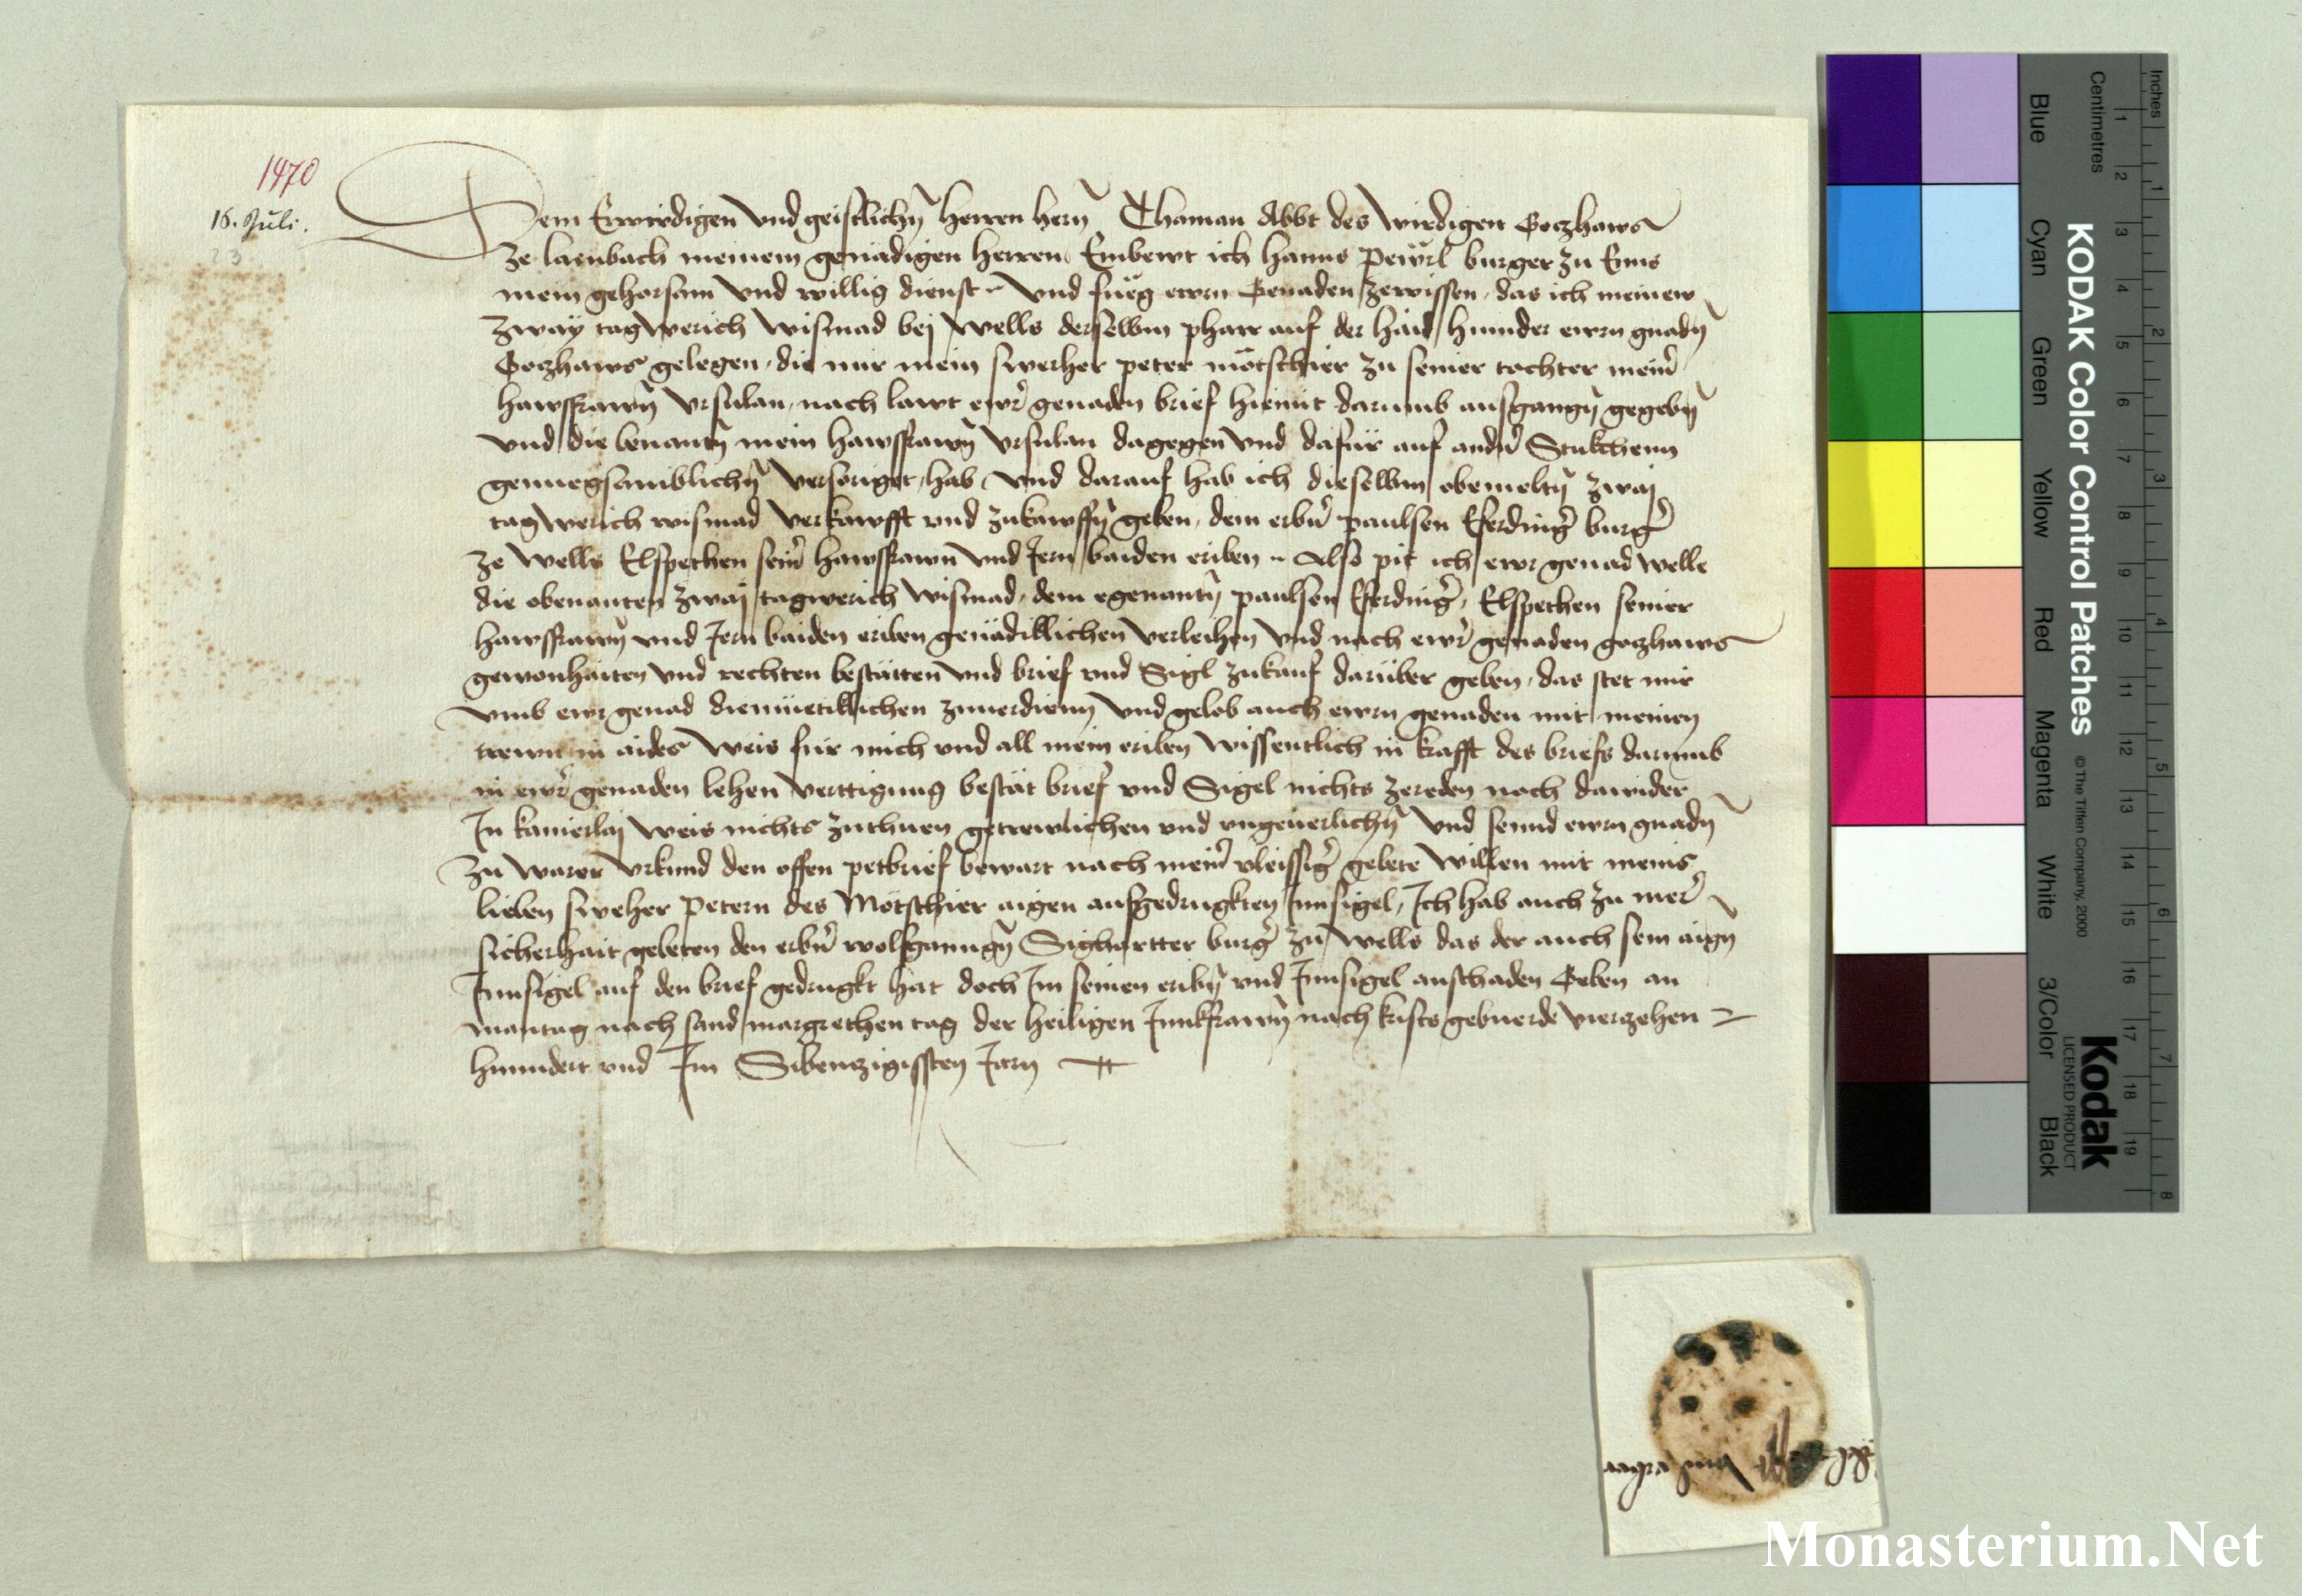 1470
16. Juli.
23
Dem Erwirdigen Vnd geistlichn̄ Herren hern̄ Thaman Abbt des Wirdigen Goczhaws
ze lambach meinem genädigen Herren Embewt ich Hanns Pewrl burger zu Enns
mein gehorsam Vnd willig dienst Vnd fueg ewrn Genaden zewissen, das ich meinew
zway tagwerich Wismad bej Wells derselbm pharr auf der haid hinnder ewrn gnadn̄
Goczhaws gelegen, die mir mein sweher peter mötschier zu seiner tochter mein̄
hawsfrawn̄ Vrsulan, nach lawt ewr̄ genaden brief hiemit darumb ausgangn̄ gegebn̄
Vnd die benantn̄ mein hawsfrawn̄ Vrsulan dagegen Vnd dafür auf andn̄ Stukchenn
genuegsamblichn̄ Versoriget, hab Vnd darauf hab ich dieselbm obemeltn̄ zwaj
tagwerich wismad Verkawfft vnd zukawffn̄ geben, dem erbn̄ paulsen Eferdinḡ burḡ
ze Wells Elspethen sein̄ hawsfrawn Vnd Jern baiden eriben Also pit ich ewr genad Welle
die obenanten zwaj tagwerich Wismad, dem egenantn̄ paulsen Eferdinḡ, Elspethen seiner
hawsfrawn̄ vnd Jern baiden eriben genädiklichen Verleihen Vnd nach ewr̄ genaden goczhaws
gewonhaiten Vnd rechten bestätten Vnd brief vnd Sigl zukauf darüber geben, das stet mir
vmb ewr genad diemüetiklichen zuuerdienn̄ Vnd gelob auch ewrn genaden mit meinen
trewn in aides Weis für mich vnd all mein eriben Wissentlich in krafft des briefs darumb
in ewr̄ genaden lehen Verttigung bestät brief vnd Sigel nichts zereden noch dawider
In kainerlaj Weis nichts zuthuen getrewlichen vnd vngeuerlichn̄ Vnd sennd ewrn gnadn̄
zu warer Vrkund den offen petbrief bewart nach mein̄ vleissiḡ gebete Willen mit meins
lieben sweher Petern des Mötschier aigen aufgedrugkten Innsigel, Ich hab auch zu mer̄
sicherhait gebeten den erbn̄ wolfganngn̄ Sighartter burḡ zu Wells das der auch sein aign̄
Innsigel auf den brief gedrugkt hat doch Im seinen eribn̄ vnd Innsigel anschaden Geben an
mantag nach sand margrethen tag der heiligen Junkfrawn̄ nach krists gebuerde vierzehen
hunndert vnd Im Sibenczigissten Jarn
Inches
Centimetres
Blue Cyan Green Yellow Red Magenta White 3/Color Black
KODAK Color Control Patches © The Tiffen Company, 2000
Kodak
LICENSED PRODUCT
1 2 3 4 5 6 7 8 9 10 11 12 13 14 15 16 17 18 19
1 2 3 4 5 6 7 8
Monasterium.Net